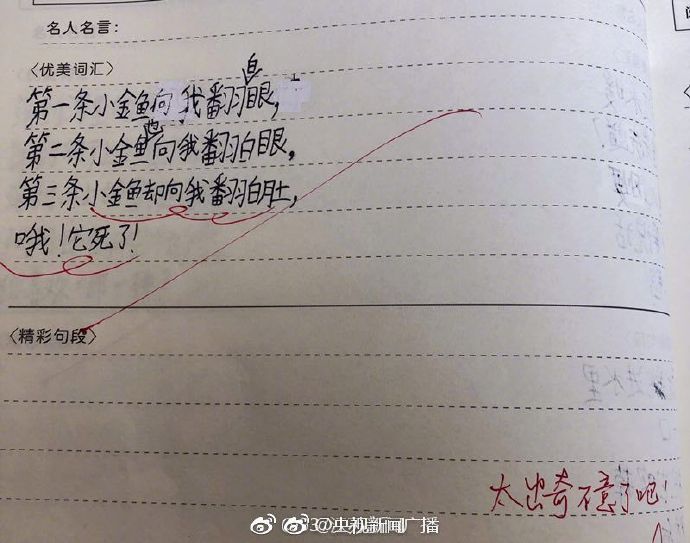 名人名言：
〈优美词汇〉
第一条小金鱼向我翻白眼，
第二条小金鱼也向我翻白眼，
第三条小金鱼却向我翻白肚，
哦！它死了！
〈精彩句段〉
太出奇不意了吧！
@央视新闻广播